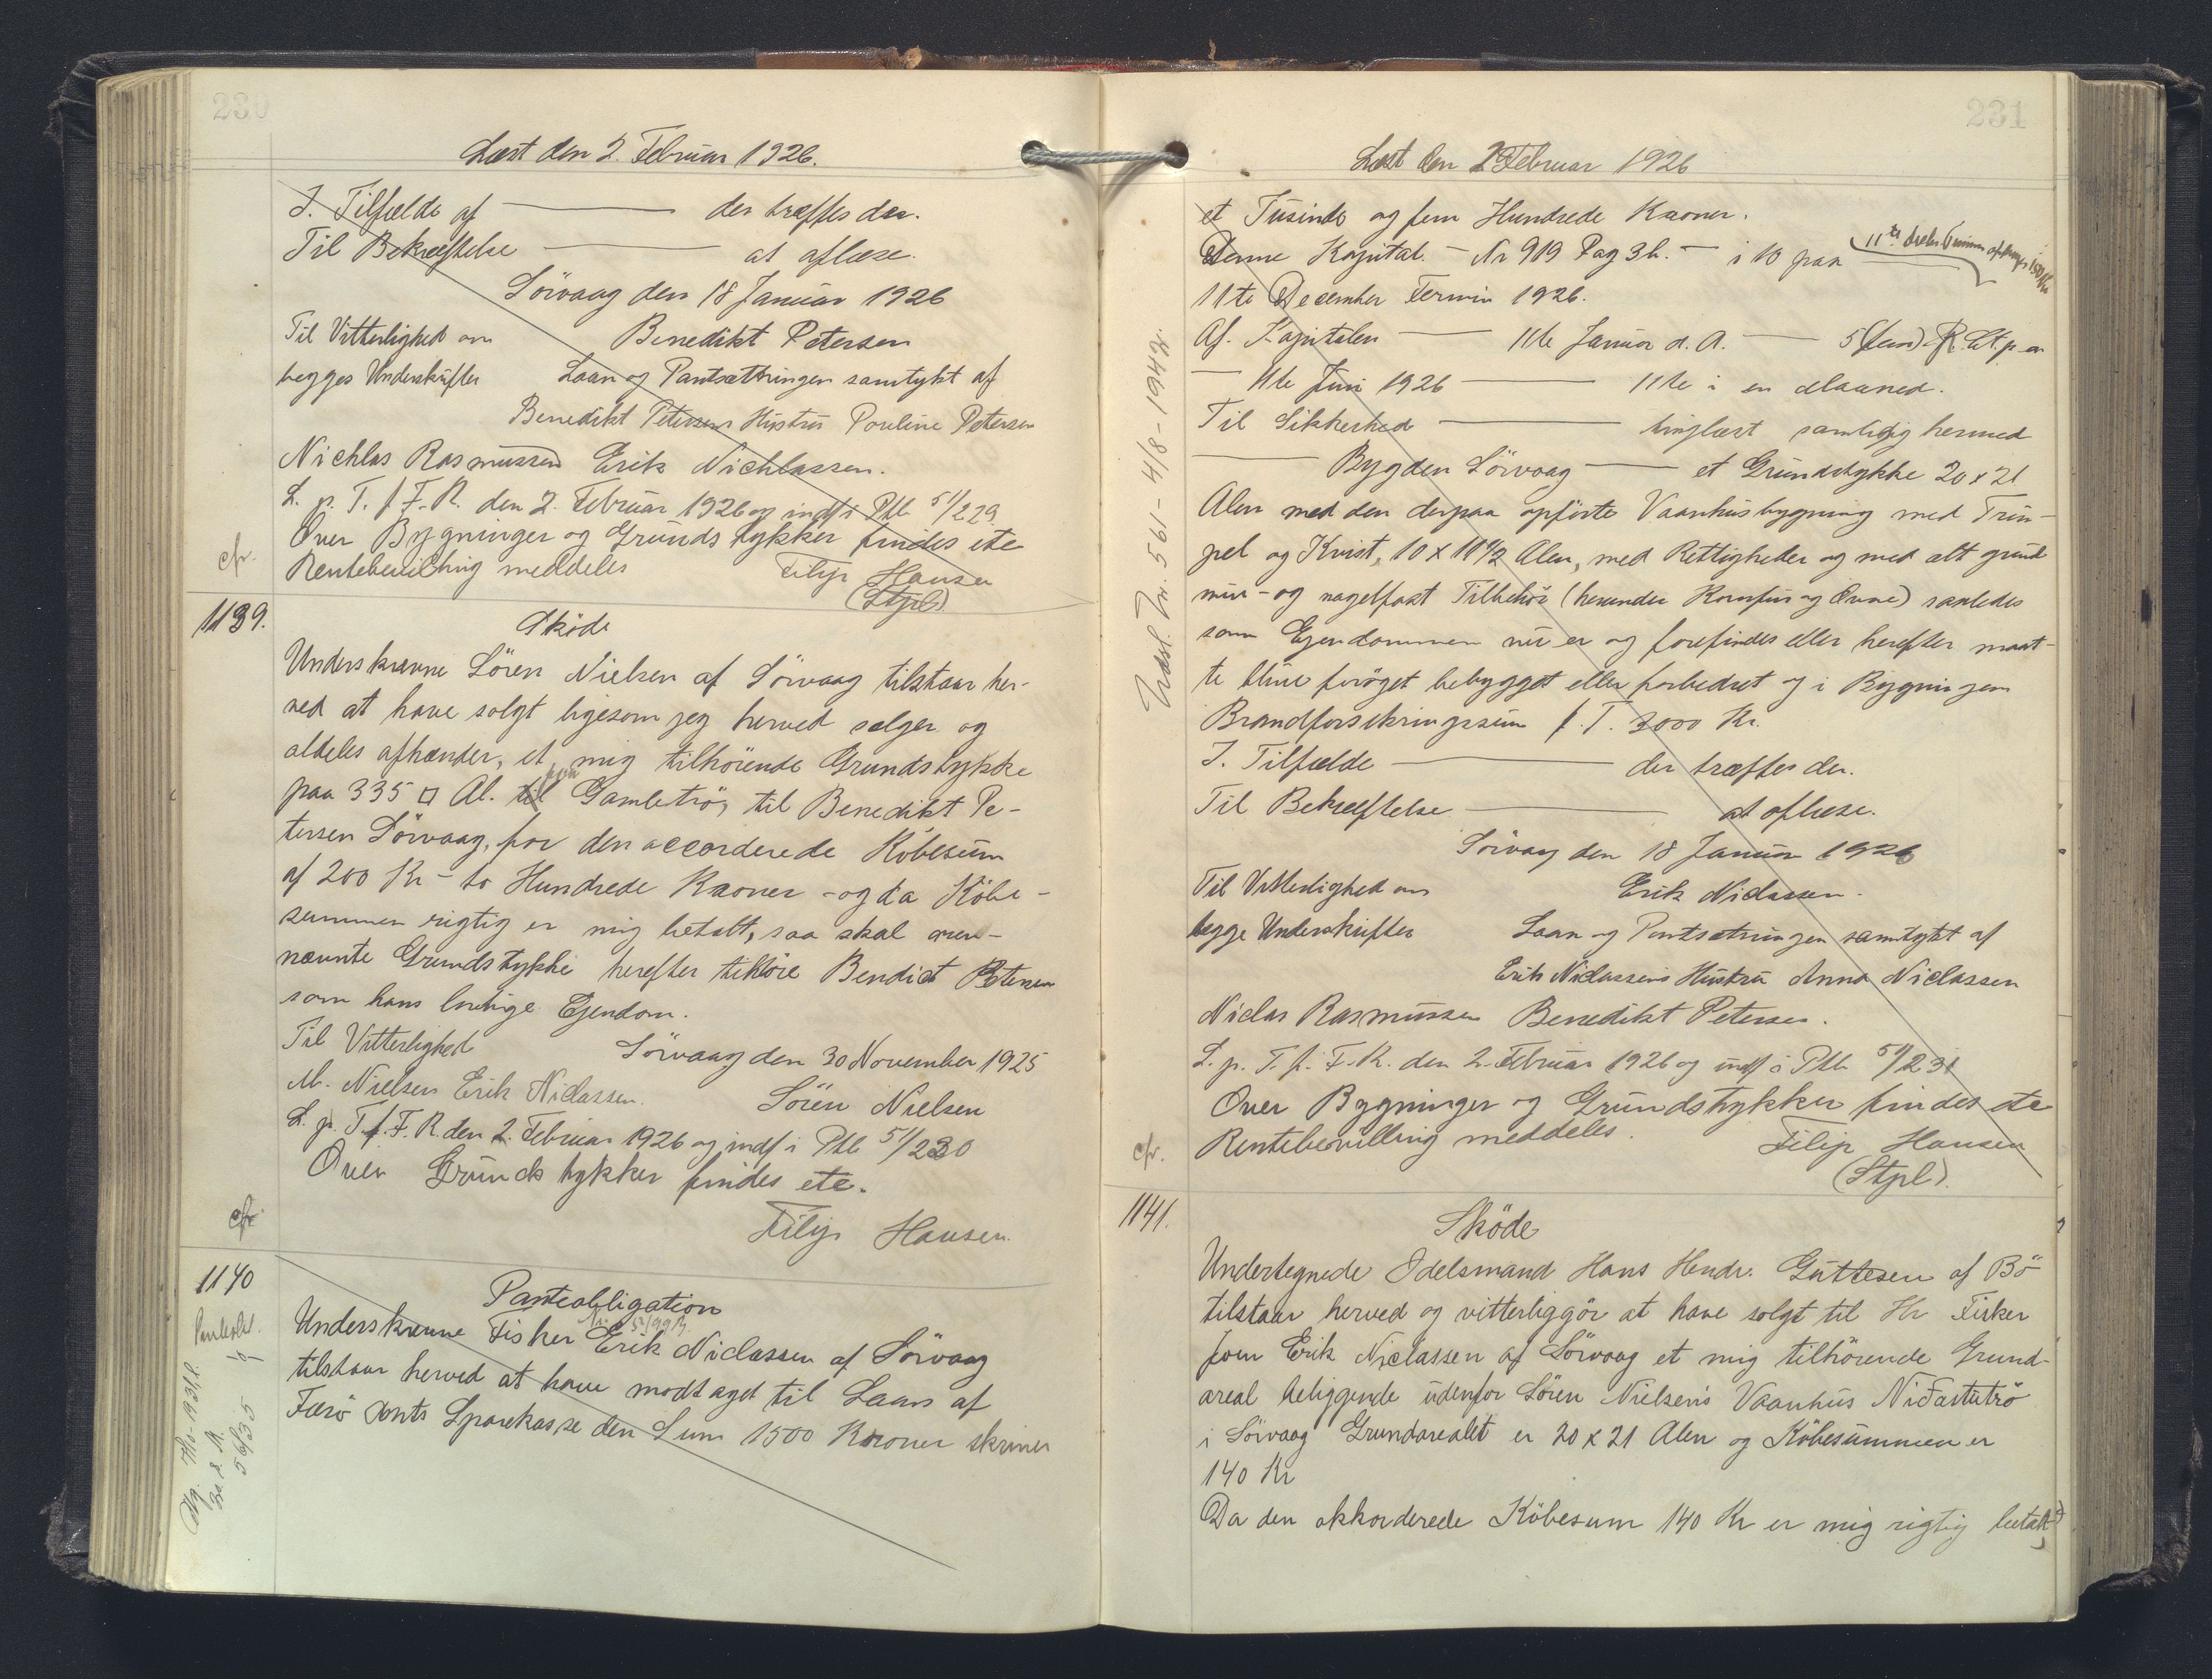 230
Læst den 2. Februar 1926.
I. Tilfælde af ——— der træffes der.
Til Bekræftelse ——— at aflæse.
Sörvaag den 18 Januar 1926
Til Vitterlighed om Benedikt Petersen
begges Underskrifter Laan og Pantsættningen samtykt af
Benedikt Petersens Hustru Pouline Petersen
Nichlas Rasmussen Erik Nichlassen.
L. p. T. f. F. R. den 2. Februar 1926 og indf i Ptb 51/229
Over Bygninger og Grundstykker findes etc
cfr. Rentebevilling meddeles Filip Hansen
(Stpl)
1139. Sköde
Underskrevne Sören Nielsen af Sörvaag tilstaar her-
ved at have solgt ligesom jeg herved sælger og
aldeles afhænder, et mig tilhörende Grundstykke
paa 335 □ Al. til paa Gamletrö, til Benedikt Pe-
tersen Sörvaag, for den accorderede Köbesum
af 200 Kr – to Hundrede Kroner – og da Köbe-
summen rigtig er mig betalt, saa skal oven-
nævnte Grundstykke herefter tilhöre Bendict Petersen
som hans lovlige Ejendom.
Til Vitterlighed Sörvaag den 30 November 1925
M. Nielsen Erik Niclassen. Sören Nielsen
L. p. T. f. F. R. den 2. Februar 1926 og indf i Ptb 51/230
Over Grundstykker findes etc.
cfr. Filip Hansen.
1140 Panteobligation
Underskrevne Fisker Erik Niclassen af Sörvaag
tilstaar herved at have modtaget til Laans af
Færö Amts Sparekasse den Sum 1500 Kroner skriver
231
Læst den 2 Februar 1926
et Tusinde og fem Hundrede Kroner.
Denne Kapital — Nr 919 Pag 3h. — i 10 paa
11te December Termin 1926.
Af Kapitalen ——— 11te Januar d. A. ——— 5 (fem) R. Ct. p. a
— 11te Juni 1926 ——— 11te i en Maaned.
Til Sikkerhed ——— tinglæst samtidig hermed
——— Bygden Sörvaag ——— et Grundstykke 20 x 21
Alen med den derpaa opförte Vaanhusbygning med Trim-
pel og Kvist, 10 x 11 1/2 Alen, med Rettigheder og med alt grund
mur- og nagelfast Tilbehör (herunder Komfur og Ovne) saaledes
som Ejendommen nu er og forefindes eller herefter maat-
te blive foröget bebygget eller forbedret og i Bygningen
Brandforsikringssum f. T. 3000 Kr.
I. Tilfælde ——— der træffes der.
Til Bekræftelse ——— at aflæse.
Sörvaag den 18 Januar 1926
Til Vitterlighed om Erik Niclassen.
begge Underskrifter Laan og Pantsætningen samtykt af
Erik Niclassens Hustru Anna Niclassen
Niclas Rasmussen Benedikt Petersen.
L. p. T. f. F. R. den 2. Februar 1926 og indf i Ptb 51/231
Over Bygninger og Grundstykker findes etc
cfr. Rentebevilling meddeles. Filip Hansen
(Stpl).
Udsl. Nr. 561 – 4/8 – 1948 K.
1141. Sköde
Undertegnede Odelsmand Hans Hendr. Guttesen af Bö
tilstaar herved og vitterliggör at have solgt til Hr Fisker
Joen Erik Niclassen af Sörvaag et mig tilhörende Grund-
areal beliggende udenfor Sören Nielsen's Vaanhus Nidastutrö
i Sörvaag Grundarealet er 20 x 21 Alen og Köbesummen er
140 Kr
Da den akkorderede Köbesum 140 Kr er mig rigtig betalt